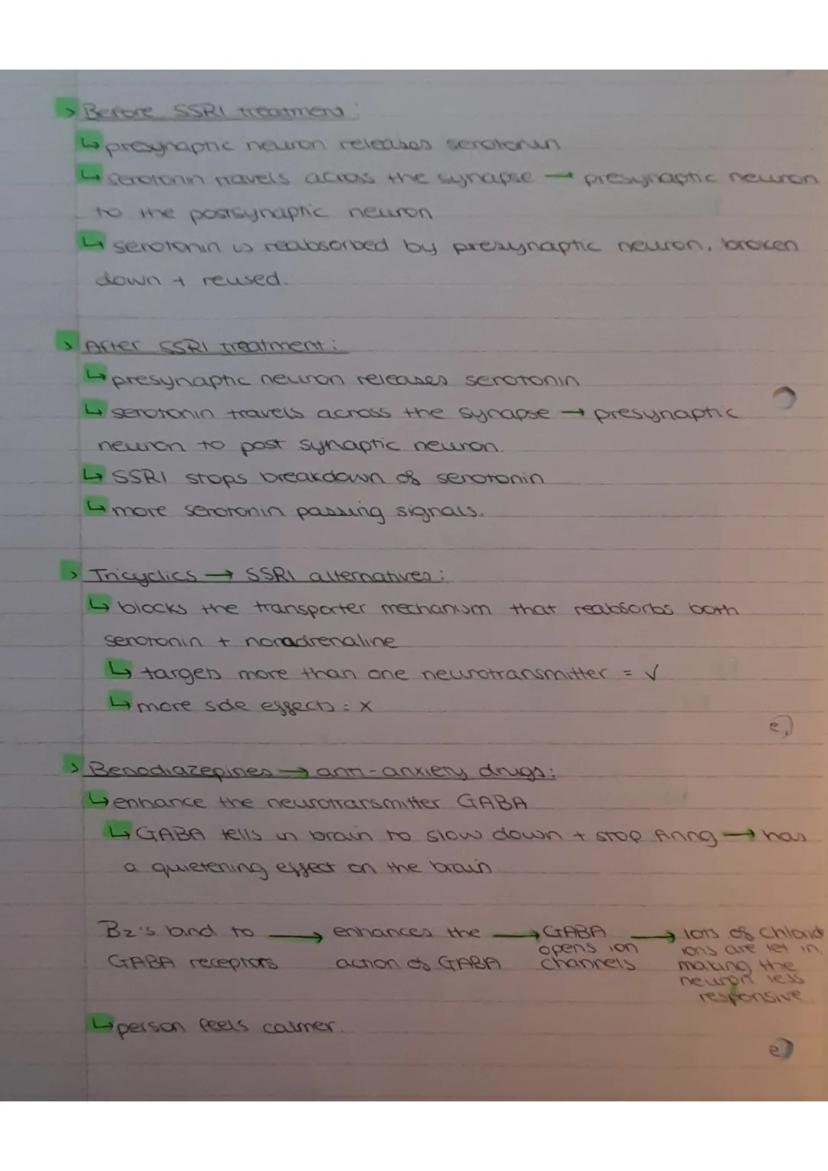 > Before SSRI treatment:
↳ presynaptic neuron releases serotonin
↳ serotonin travels across the synapse → presynaptic neuron
to the postsynaptic neuron
↳ serotonin is reabsorbed by presynaptic neuron, broken
down + reused.
> After SSRI treatment:
↳ presynaptic neuron releases serotonin
↳ serotonin travels across the synapse → presynaptic
neuron to post synaptic neuron.
↳ SSRI stops breakdown of serotonin
↳ more serotonin passing signals.
> Tricyclics → SSRI alternatives:
↳ blocks the transporter mechanism that reabsorbs both
serotonin + noradrenaline
↳ targets more than one neurotransmitter = √
↳ more side effects = x
> Benodiazepines → anti-anxiety drugs:
↳ enhance the neurotransmitter GABA
↳ GABA tells in brain to slow down + stop firing → has
a quietening effect on the brain
Bz's bind to → enhances the → GABA → lots of chloride
GABA receptors action of GABA opens ion ions are let in,
channels making the
neuron less
responsive.
↳ person feels calmer.